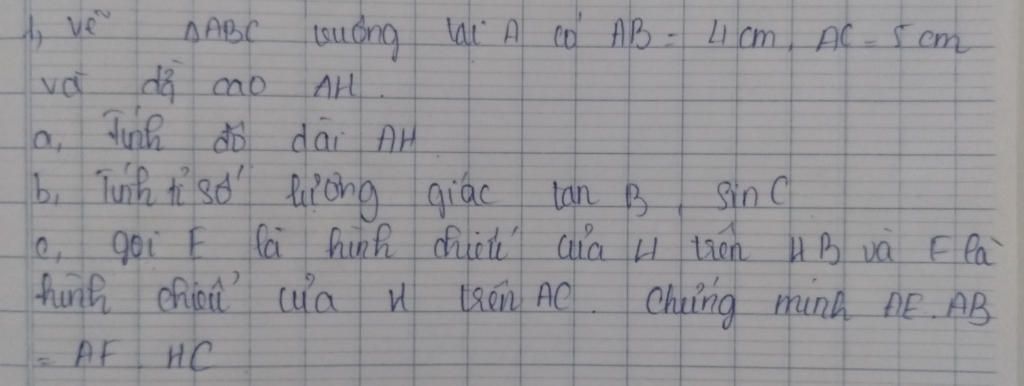 1, vẽ ΔABC vuông tại A có AB = 4 cm, AC = 5 cm
và độ cao AH.
a, Tính độ dài AH
b, Tính tỉ số lượng giác tan B, sin C
c, gọi E là hình chiếu của H trên HB và F là
hình chiếu của H trên AC. Chứng minh AE. AB
= AF. HC